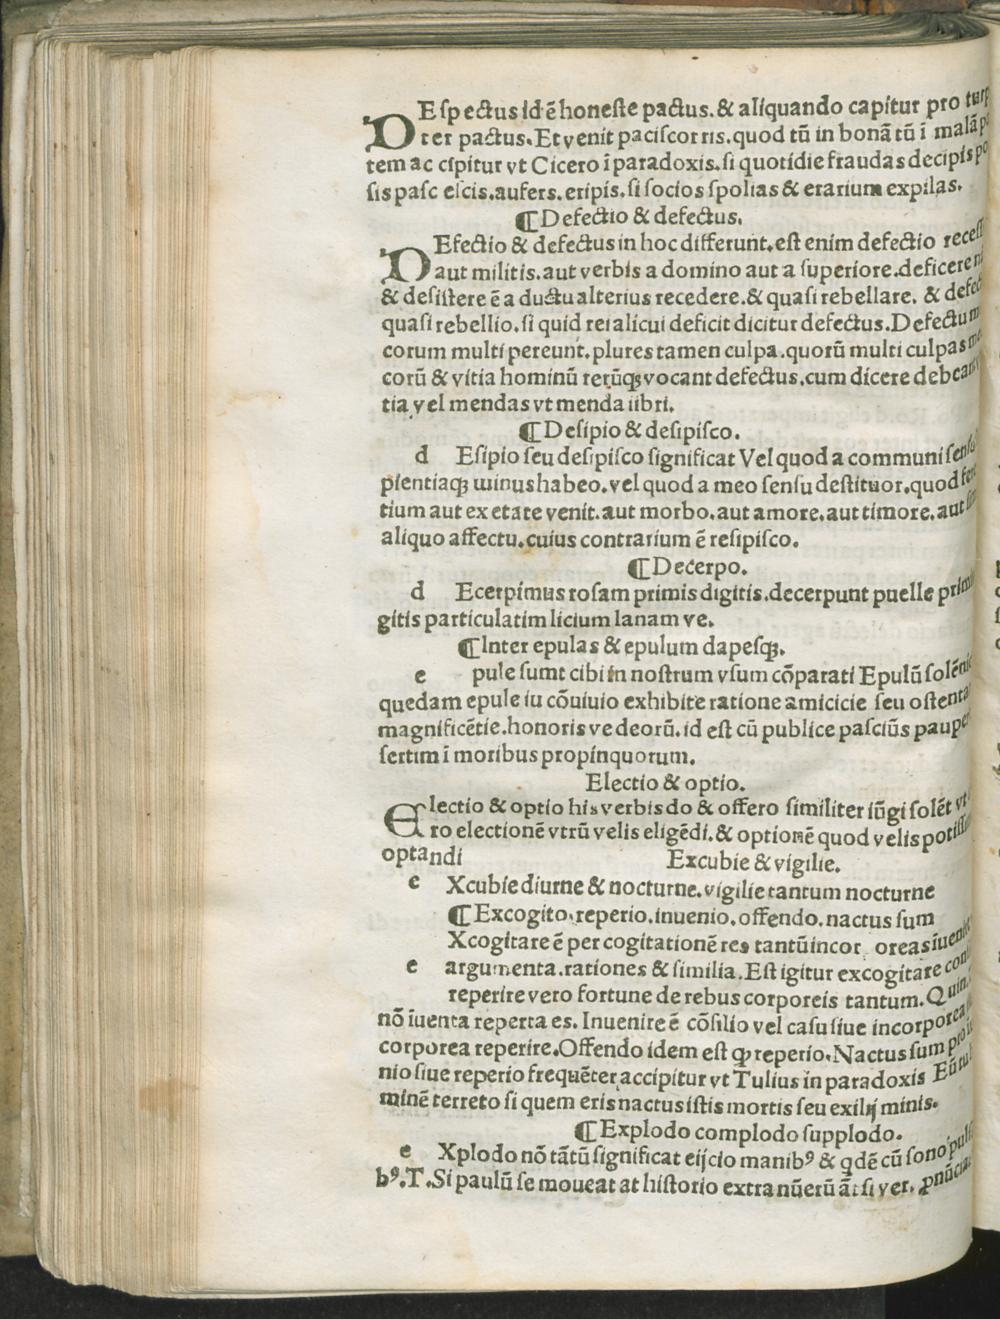 DEſpectus id ē honeſte pactus. & aliquando capitur pro turp
ter pactus. Et venit paciſcor ris. quod tū in bonā tū ī malā
tem ac cipitur vt Cicero ī paradoxis. ſi quotidie fraudas decipis
ſis paſc eſcis. aufers. eripis. ſi ſocios ſpolias & erarium expilas.
¶Defectio & defectus.
DEfectio & defectus in hoc differunt. eſt enim defectio
aut militis. aut verbis a domino aut a ſuperiore. deficere
& deſiſtere ē a ductu alterius recedere. & quaſi rebellare. &
quaſi rebellio. ſi quid rei alicui deficit dicitur defectus. Defectu
corum multi pereunt. plures tamen culpa. quorū multi culpas
corū & vitia hominū rerūqꝫ vocant defectus. cum dicere
tia vel mendas vt menda libri.
¶Deſipio & deſipiſco.
d Eſipio ſeu deſipiſco ſignificat Vel quod a communi
pientiaqꝫ winus habeo. vel quod a meo ſenſu deſtituor. quod
tium aut ex etate venit. aut morbo. aut amore. aut timore. aut
aliquo affectu. cuius contrarium ē reſipiſco.
¶Decerpo.
d Ecerpimus roſam primis digitis. decerpunt puelle
gitis particulatim licium lanam ve.
¶Inter epulas & epulum dapeſqꝫ.
e pule ſumt cibi in noſtrum vſum cōparati Epulū
quedam epule iu cōuiuio exhibite ratione amicicie ſeu
magnificētie. honoris ve deorū. id eſt cū publice paſciūs
ſertim ī moribus propinquorum.
Electio & optio.
Electio & optio his verbis do & offero ſimiliter iūgi ſolēt vt
ro electionē vtrū velis eligēdi. & optionē quod velis
optandi Excubie & vigilie.
e Xcubie diurne & nocturne. vigilie tantum nocturne
¶Excogito. reperio. inuenio. offendo. nactus ſum
Xcogitare ē per cogitationē res tantū incor oreas
e argumenta. rationes & ſimilia. Eſt igitur excogitare
reperire vero fortune de rebus corporeis tantum.
nō īuenta reperta es. Inuenire ē cōſilio vel caſu ſiue
corporea reperire. Offendo idem eſt qꝫ reperio. Nactus ſum
nio ſiue reperio frequēter accipitur vt Tulius in paradoxis
minē terreto ſi quem eris nactus iſtis mortis ſeu exilij minis.
¶Explodo complodo ſupplodo.
e Xplodo nō tātū ſignificat eijcio manibꝰ & qdē cū ſono
bꝰ. T. Si paulū ſe moueat at hiſtorio extra nūerū āt ſi ver.